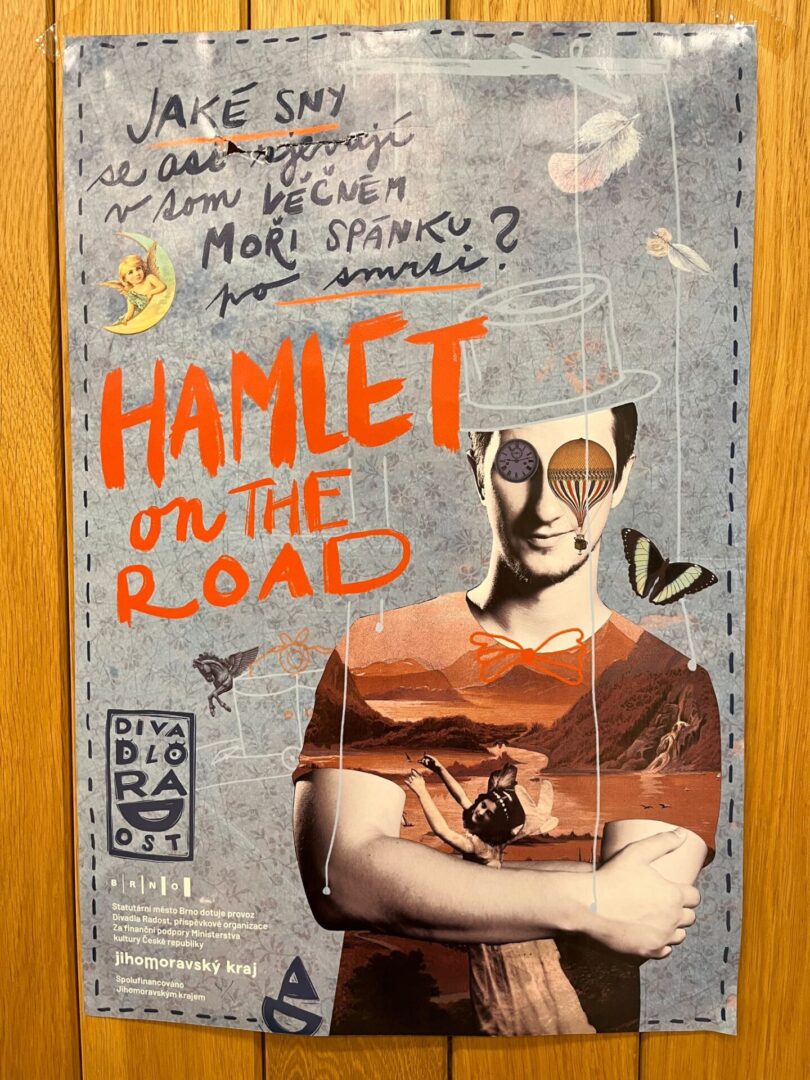 JAKÉ SNY
se asi zjevají
v tom VĚČNÉM
MOŘI SPÁNKU
po smrti?
HAMLET
on THE
ROAD
DIVA
DLO
RA
D
OST
BRNO
Statutární město Brno dotuje provoz
Divadla Radost, příspěvkové organizace
Za finanční podpory Ministerstva
kultury České republiky
jihomoravský kraj
Spolufinancováno
Jihomoravským krajem